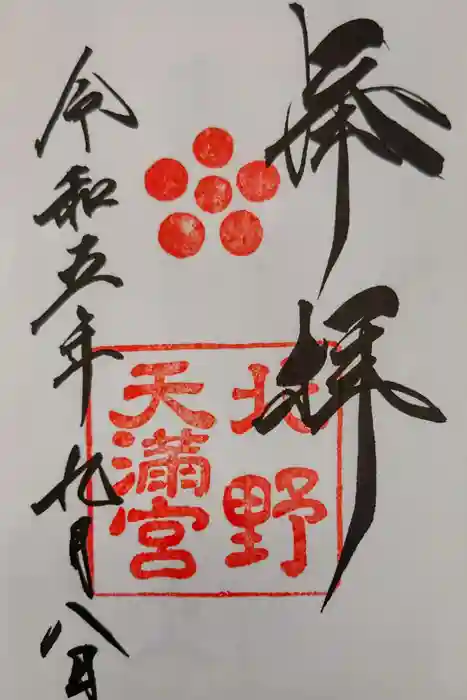 奉拝
北野
天満宮
令和五年九月八日